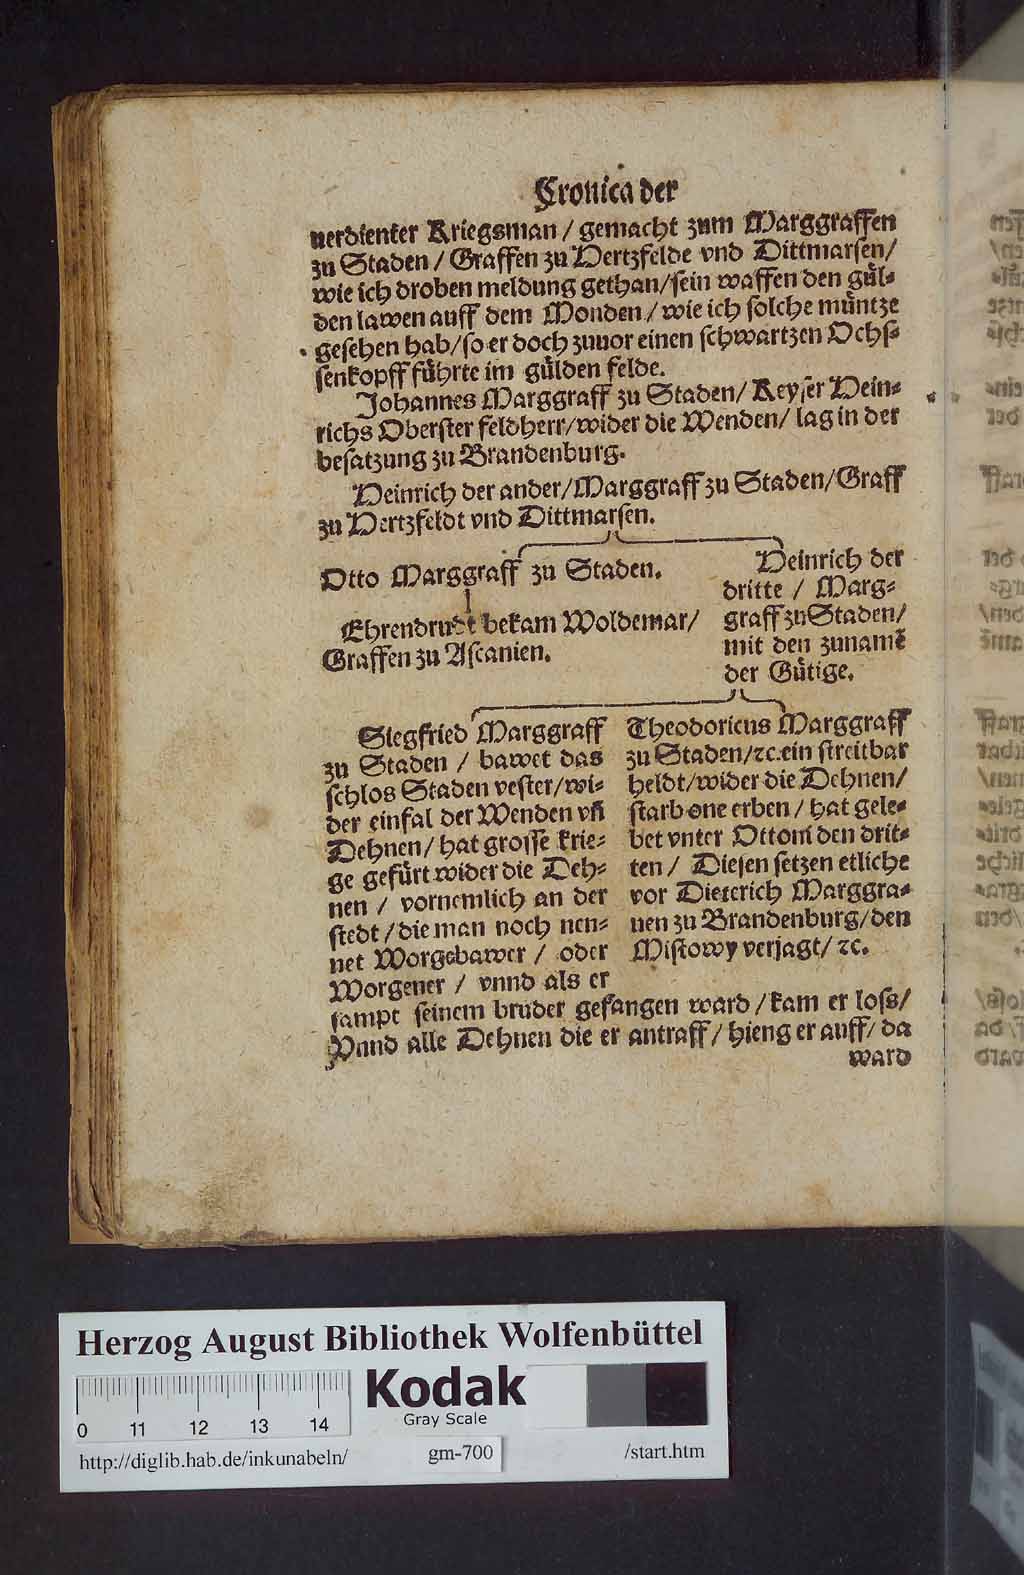 Cronica der
uerdienter Kriegsman / gemacht zum Marggraffen
zu Staden / Graffen zu Hertzfelde vnd Dittmarsen /
wie ich droben meldung gethan / sein waffen den gül-
den lawen auff dem Monden / wie ich solche müntze
gesehen hab / so er doch zuuor einen schwartzen Ochs-
senkopff führte im gülden felde.
Johannes Marggraff zu Staden / Keyser Hein-
richs Oberster feldherr / wider die Wenden / lag in der
besatzung zu Brandenburg.
Heinrich der ander / Marggraff zu Staden / Graff
zu Hertzfeldt vnd Dittmarsen.
Otto Marggraff zu Staden.
Ehrendrudt bekam Woldemar /
Graffen zu Ascanien.
Heinrich der
dritte / Marg-
graff zu Staden /
mit den zunamẽ
der Gütige.
Siegfried Marggraff
zu Staden / bawet das
schlos Staden vester / wi-
der einfal der Wenden vñ
Dehnen / hat grosse krie-
ge gefürt wider die Deh-
nen / vornemlich an der
stedt / die man noch nen-
net Worgebawer / oder
Worgener / vnnd als er
Theodoricus Marggraff
zu Staden / ꝛc. ein streitbar
heldt / wider die Dehnen /
starb one erben / hat gele-
bet vnter Ottoni den drit-
ten / Diesen setzen etliche
vor Dieterich Marggra-
uen zu Brandenburg / den
Mistowy verjagt / ꝛc.
sampt seinem bruder gefangen ward / kam er loss /
Vnnd alle Dehnen die er antraff / hieng er auff / da
ward
Herzog August Bibliothek Wolfenbüttel
Kodak
Gray Scale
0 11 12 13 14
http://diglib.hab.de/inkunabeln/ gm-700 /start.htm